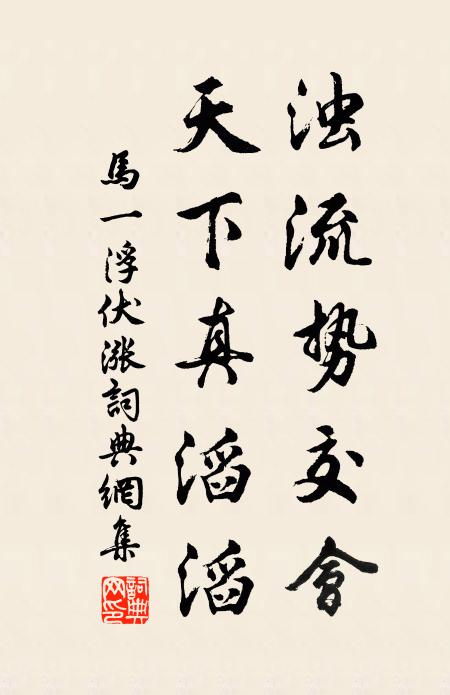 浊流势交會
天下真滔滔
馬一浮伏漲詞典網集
詞典網印